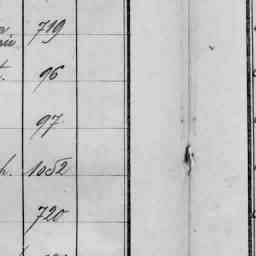 719
96
97
h. 1052
720